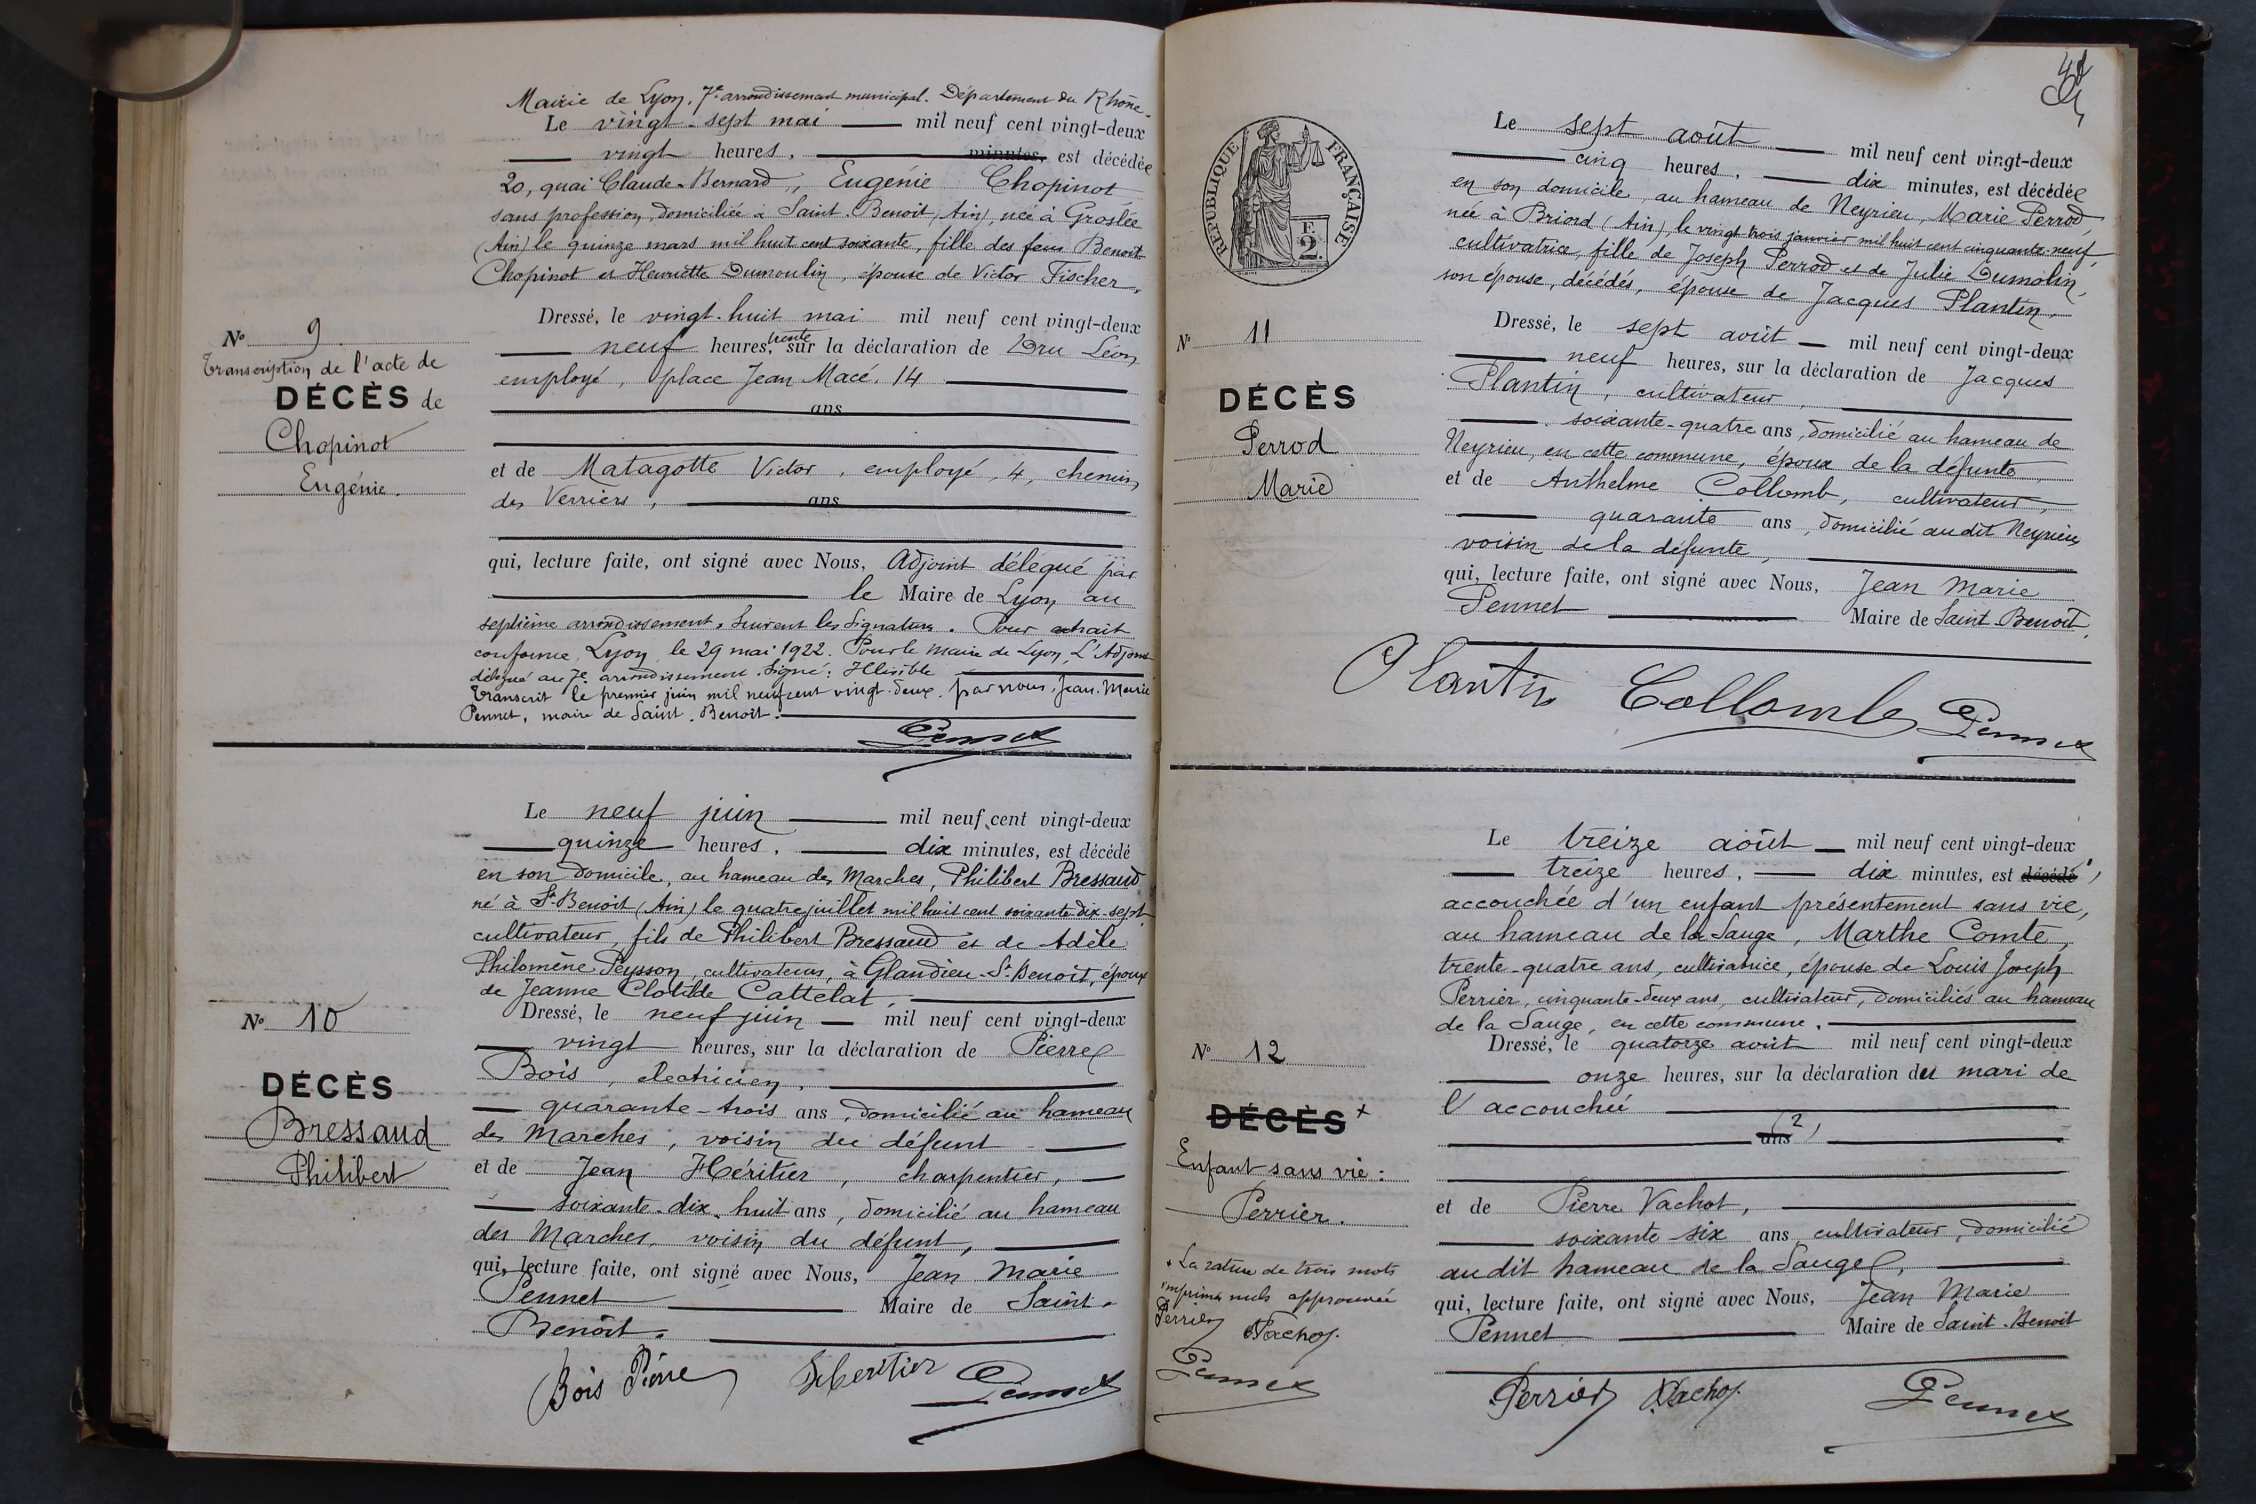 Mairie de Lyon, 7e arrondissement municipal. Département du Rhône.
Le vingt-sept mai mil neuf cent vingt-deux
vingt heures, minutes, est décédée
20, quai Claude-Bernard, Eugénie Chopinot
sans profession, domiciliée à Saint-Benoit (Ain), née à Groslée
(Ain) le quinze mars mil huit cent soixante, fille des feus Benoit
Chopinot et Henriette Dumoulin, épouse de Victor Fischer.
Dressé, le vingt-huit mai mil neuf cent vingt-deux
neuf heures, trente sur la déclaration de Dru Léon
employé, place Jean Macé, 14
ans
et de Matagotte Victor, employé, 4, chemin
des Verriers, ans
qui, lecture faite, ont signé avec Nous, Adjoint délégué par
le Maire de Lyon au
septième arrondissement, suivent les signatures. Pour extrait
conforme, Lyon, le 29 mai 1922. Pour le maire de Lyon, L'Adjoint
délégué au 7e arrondissement. Signé: Illisible
Transcrit le premier juin mil neuf cent vingt-deux, par nous, Jean-Marie
Pennet, maire de Saint-Benoit.
Pennet
No 9
Transcription de l'acte de
DÉCÈS de
Chopinot
Eugénie.
Le neuf juin mil neuf cent vingt-deux
quinze heures, dix minutes, est décédé
en son domicile, au hameau des Marches, Philibert Bressaud
né à St-Benoit (Ain) le quatre juillet mil huit cent soixante-dix-sept
cultivateur, fils de Philibert Bressaud et de Adèle
Philomène Peysson, cultivateurs, à Glandieu-St-Benoit, époux
de Jeanne Clotilde Cattelat.
Dressé, le neuf juin mil neuf cent vingt-deux
vingt heures, sur la déclaration de Pierre
Bois, électricien,
quarante-trois ans, domicilié au hameau
des Marches, voisin du défunt
et de Jean Héritier, charpentier,
soixante-dix-huit ans, domicilié au hameau
des Marches, voisin du défunt,
qui, lecture faite, ont signé avec Nous, Jean Marie
Pennet Maire de Saint-
Benoit.
Bois Pierre Pennet
No 10
DÉCÈS
Bressaud
Philibert
RÉPUBLIQUE FRANÇAISE
E
2
Le sept août mil neuf cent vingt-deux
cinq heures, dix minutes, est décédée
en son domicile, au hameau de Neyrieu, Marie Perrod,
née à Briord (Ain), le vingt trois janvier mil huit cent cinquante-neuf,
cultivatrice, fille de Joseph Perrod et de Julie Dumolin,
son épouse, décédés, épouse de Jacques Plantin.
Dressé, le sept août mil neuf cent vingt-deux
neuf heures, sur la déclaration de Jacques
Plantin, cultivateur,
soixante-quatre ans, domicilié au hameau de
Neyrieu, en cette commune, époux de la défunte,
et de Anthelme Collomb, cultivateur,
quarante ans, domicilié audit Neyrieu,
voisin de la défunte,
qui, lecture faite, ont signé avec Nous, Jean Marie
Pennet Maire de Saint-Benoit.
Plantin Collomb Pennet
No 11
DÉCÈS
Perrod
Marie
Le treize août mil neuf cent vingt-deux
treize heures, dix minutes, est décédé
accouchée d'un enfant présentement sans vie,
au hameau de la Sauge, Marthe Comte,
trente-quatre ans, cultivatrice, épouse de Louis Joseph
Perrier, cinquante-deux ans, cultivateur, domiciliés au hameau
de la Sauge, en cette commune.
Dressé, le quatorze août mil neuf cent vingt-deux
onze heures, sur la déclaration du mari de
l'accouchée
ans
et de Pierre Vachot,
soixante-six ans, cultivateur, domicilié
audit hameau de la Sauge,
qui, lecture faite, ont signé avec Nous, Jean Marie
Pennet Maire de Saint-Benoit
Perrier Vachot Pennet
No 12
DÉCÈS +
Enfant sans vie:
Perrier.
+ La rature de trois mots
imprimés nuls approuvée
Perrier Vachot
Pennet